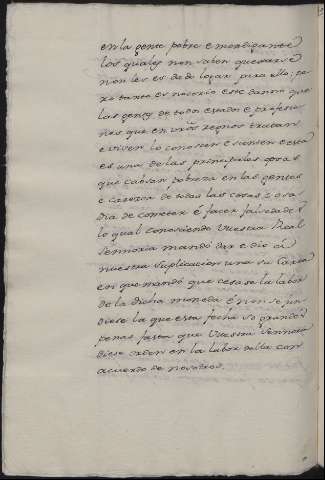 en la gente pobre é mendigante é
los quales non saben quexarse
nin les es dado logar para ello; pe
ro tanto es notorio este danno que
las gentes de todos estados é profesio
nes que en vros regnos tratan
é viven lo conoscen é sienten é esta
es una de las principales cosas
que cabsan pobreza en las gentes
é carestia de todas las cosas é osa
dia de cometer é facer falsedades
lo qual conosciendo Vuestra Real
Sennoria mandó dar é dió á
nuestra suplicacion una su Carta
en que mandó que cesase la labor
de la dicha moneda é non se fun
diese la que esta fecha so grandes
penas fasta que Vuestra Sennoria
diese orden en la labor della con
acuerdo de nosotros.